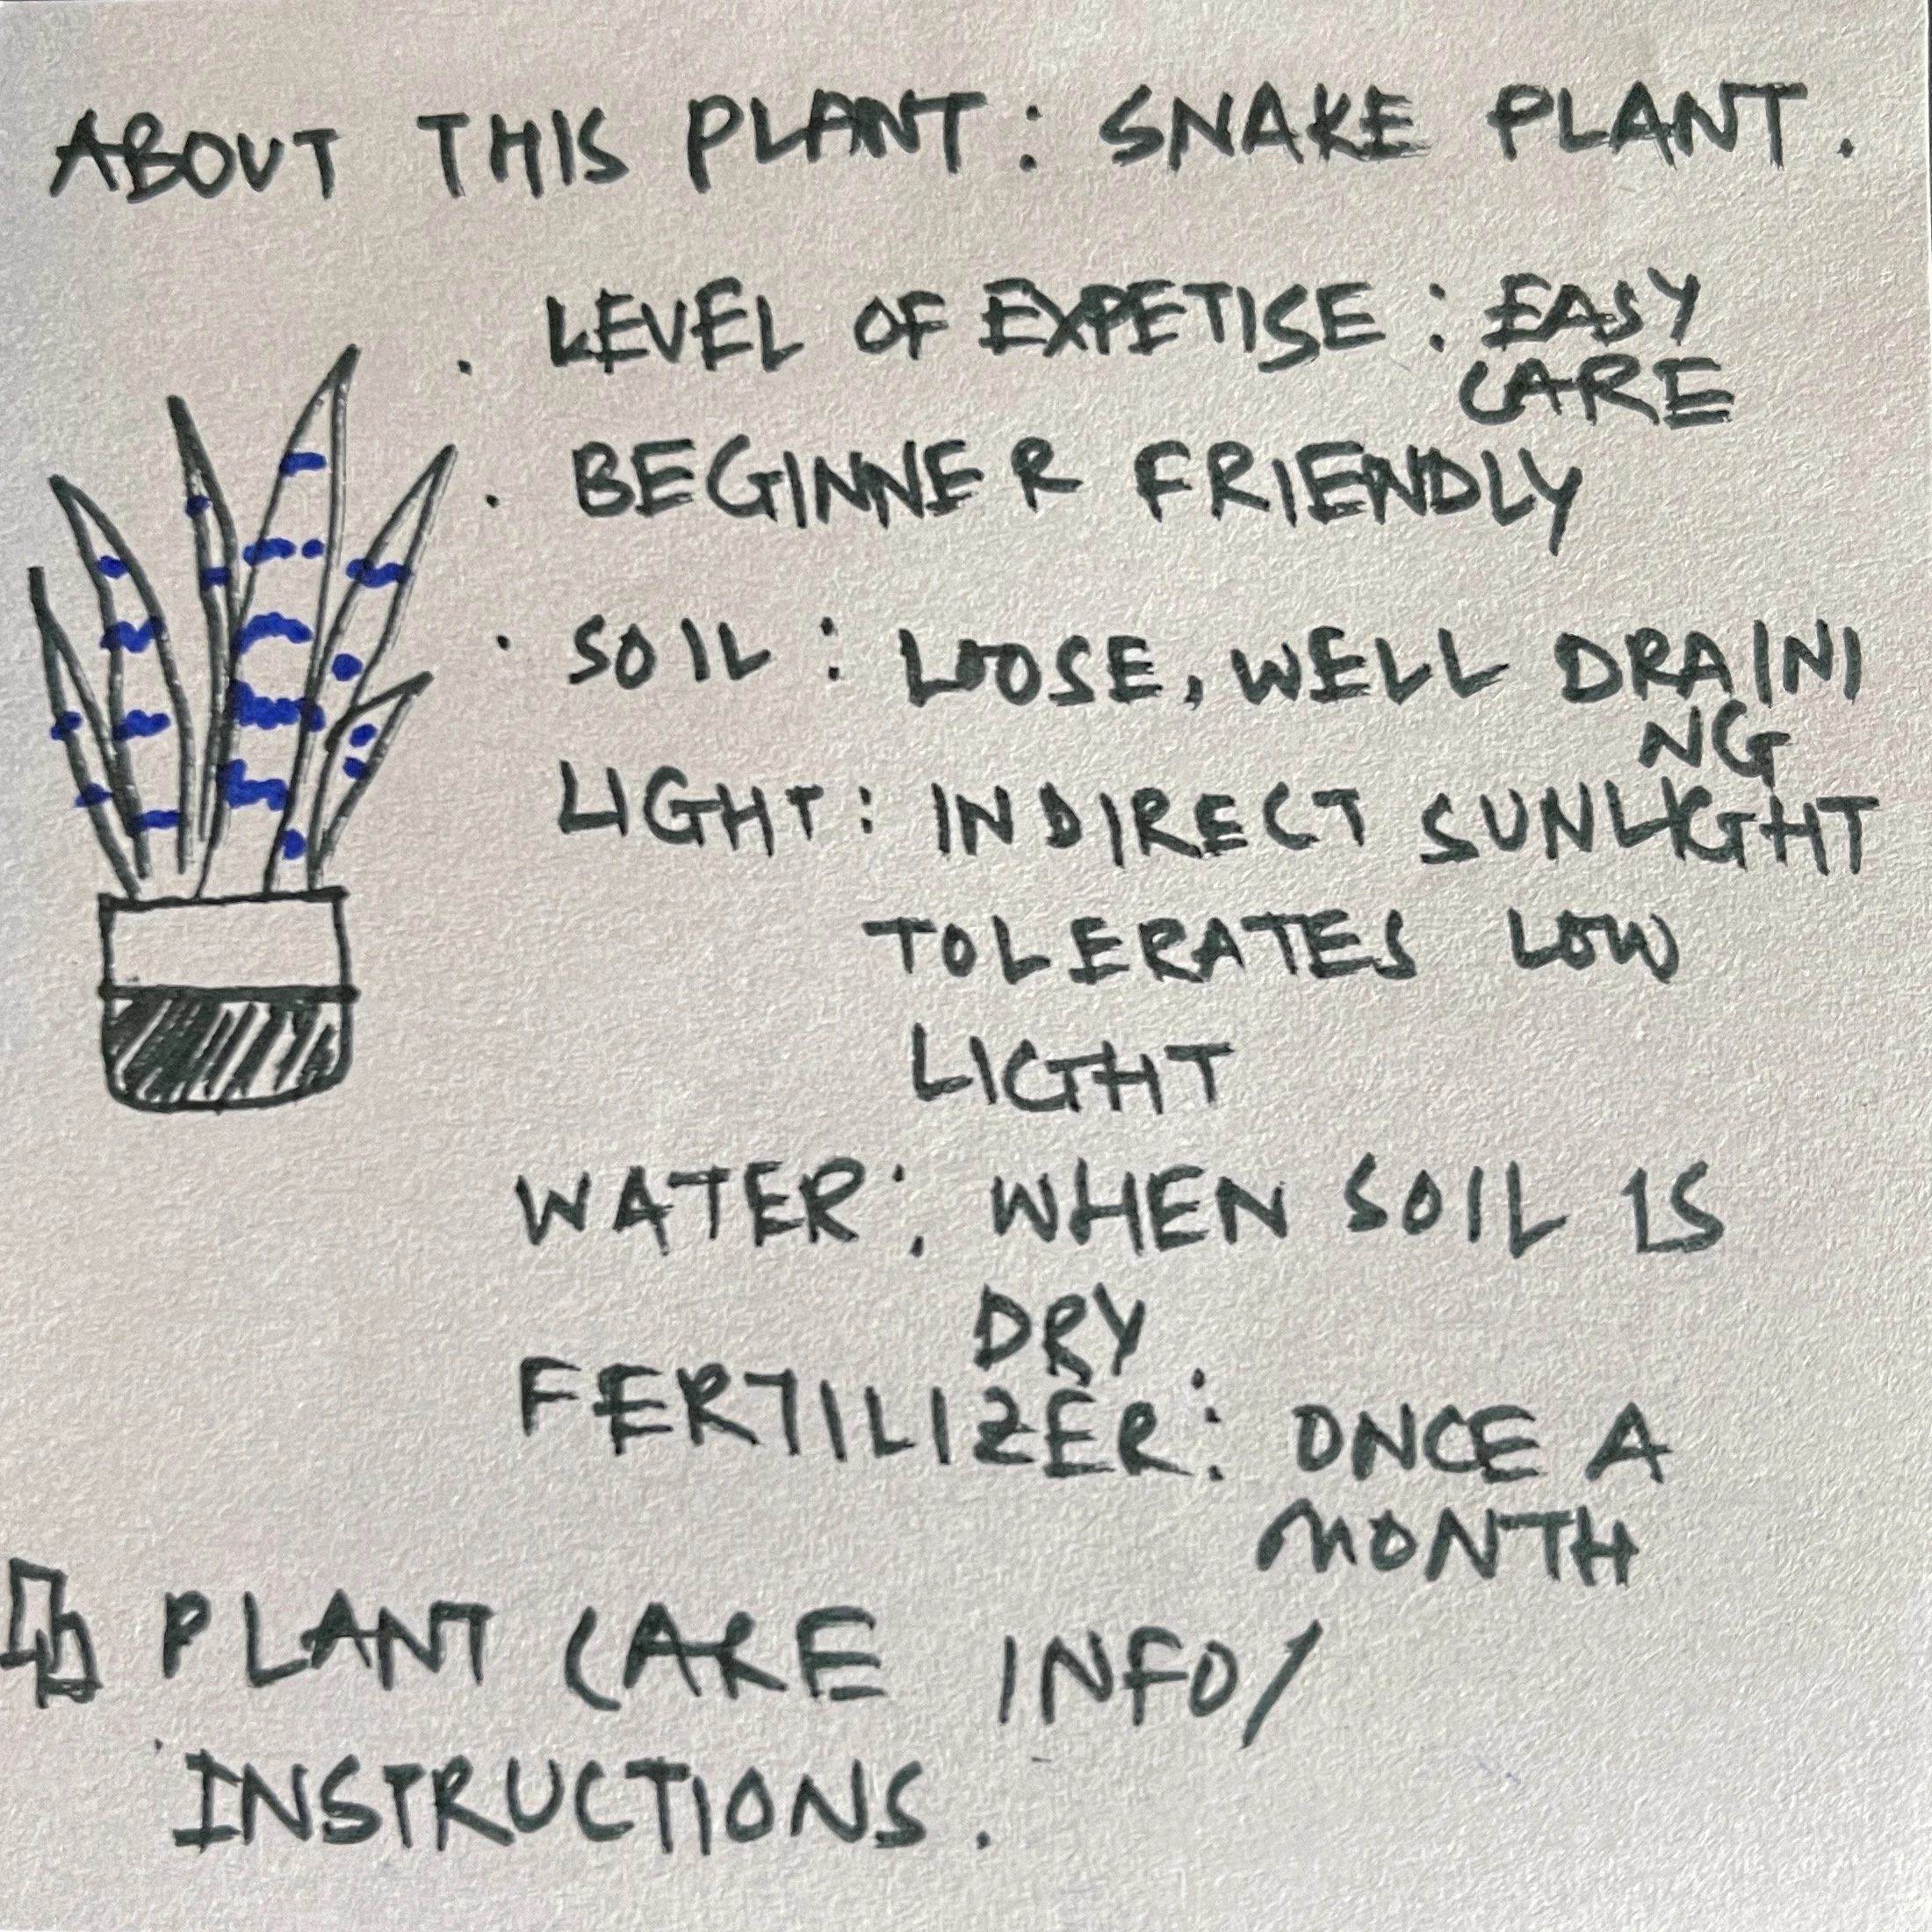 ABOUT THIS PLANT: SNAKE PLANT.
. LEVEL OF EXPETISE: EASY
CARE
. BEGINNER FRIENDLY
. SOIL: LOOSE, WELL DRAINI
NG
LIGHT: INDIRECT SUNLIGHT
TOLERATES LOW
LIGHT
WATER: WHEN SOIL IS
DRY
FERTILIZER: ONCE A
MONTH
PLANT CARE INFO/
INSTRUCTIONS.